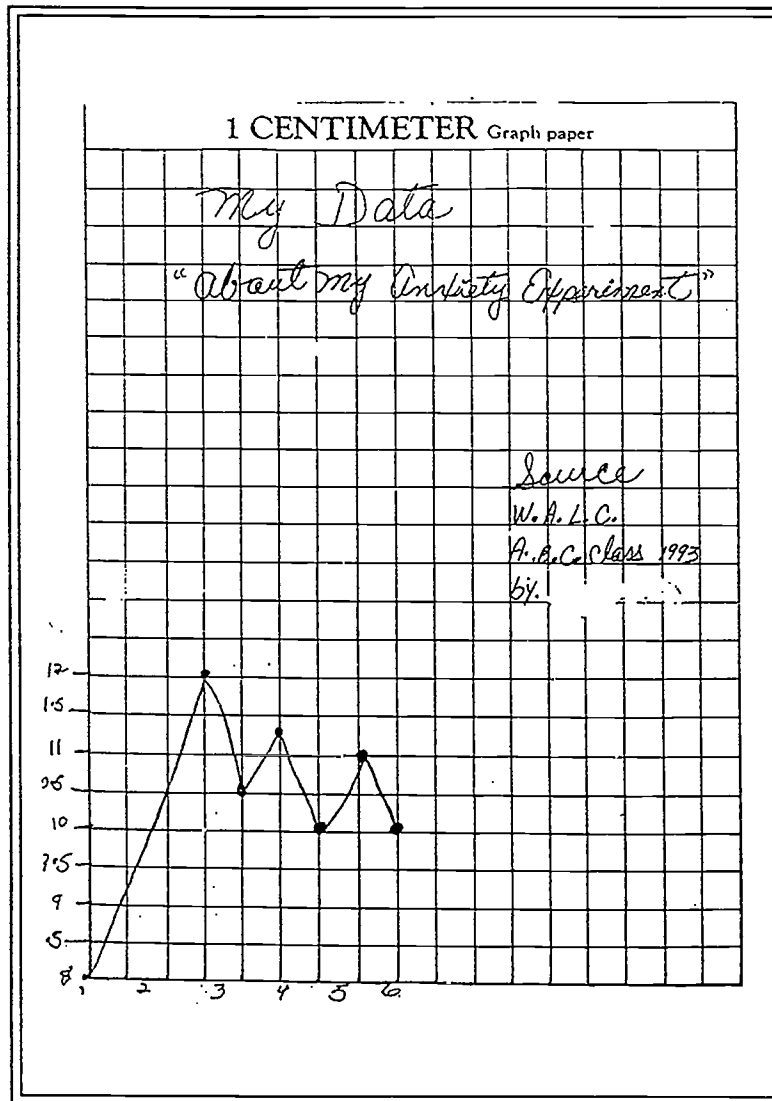 1 CENTIMETER Graph paper
My Data
"About My Anxiety Experiment"
Source
W.A.L.C.
A.B.C. Class 1993
by.
12
11
10
9
.5
8
1 2 3 4 5 6